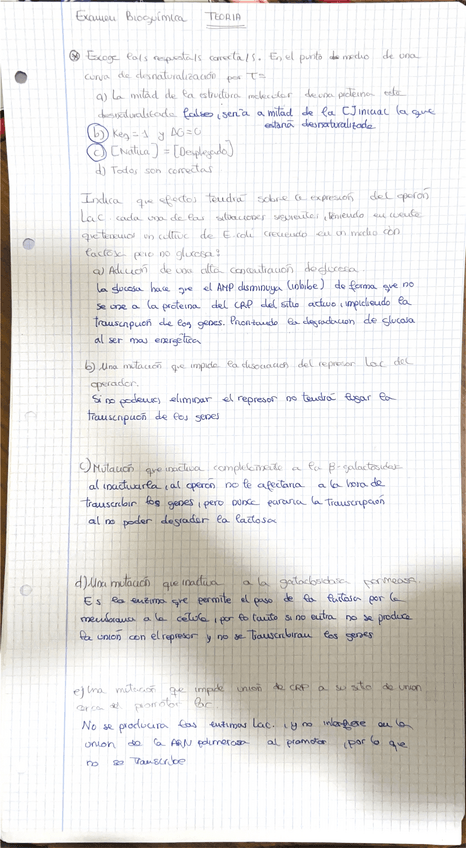 Examen Bioquímica TEORIA
Escoge la/s respuesta/s correcta/s. En el punto medio de una
curva de desnaturalización por Tª
a) La mitad de la estructura molecular de una proteína está
desnaturalizada falso, sería a mitad de la [] inicial la que
estaría desnaturalizada
b) Keq = 1 y ΔG=0
c) [Nativa] = [Desplegada]
d) Todas son correctas
Indica que efectos tendrá sobre la expresión del operón
Lac cada una de las situaciones siguientes, teniendo en cuenta
que tenemos un cultivo de E. coli creciendo en un medio con
lactosa pero no glucosa:
a) Adición de una alta concentración de glucosa
La glucosa hace que el AMP disminuya (inhibe) de forma que no
se une a la proteina del CRP del sitio activo, impidiendo la
transcripción de los genes. Priorizando la degradación de glucosa
al ser mas energética
b) Una mutación que impide la disociación del represor lac del
operador.
Si no podemos eliminar el represor no tendrá lugar la
transcripción de los genes
c) Mutación que inactiva completamente a la β-galactosidasa
al inactivarla, al operón no le afectaria a la hora de
transcribir los genes, pero nunca pararia la transcripción
al no poder degradar la lactosa
d) Una mutación que inactiva a la galactosidasa permeasa.
Es la enzima que permite el paso de la lactosa por la
membrana a la célula, por lo tanto si no entra no se produce
la unión con el represor y no se transcribiran los genes
e) Una mutación que impide unión de CRP a su sitio de union
cerca el promotor lac.
No se producira las enzimas Lac. y no interfiere en la
union de la ARN polimerasa al promotor, por lo que
no se transcribe